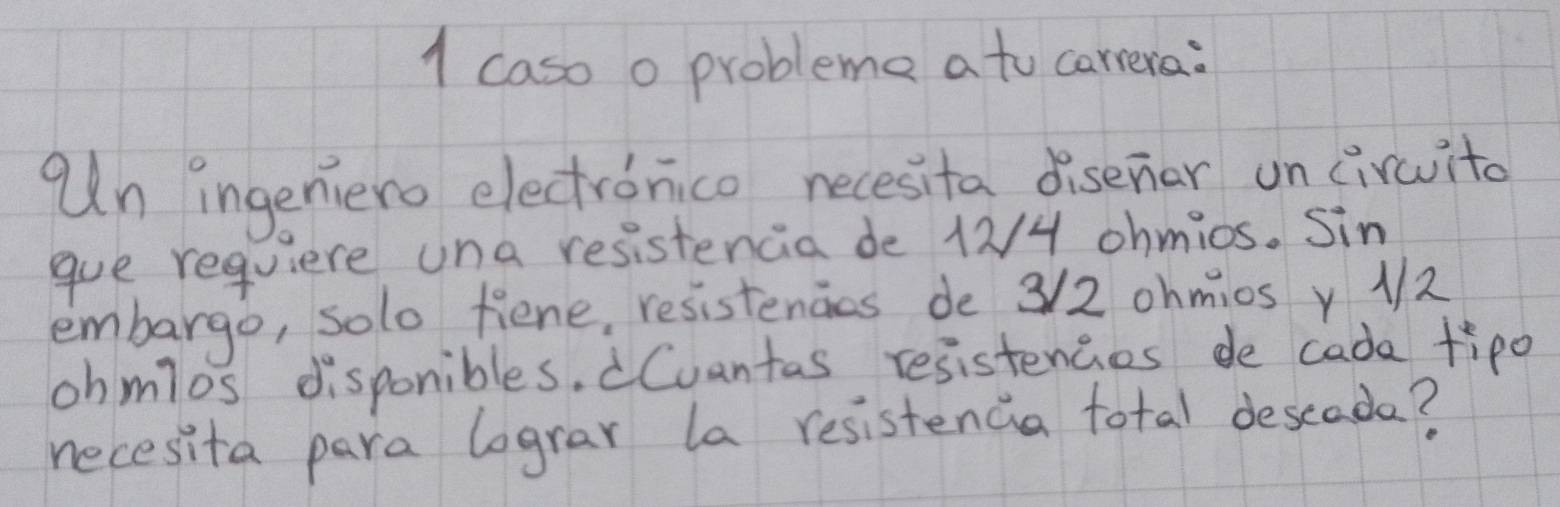 1 caso o problema a tu carrera:
Un ingeniero electrónico necesita diseñar un circuito
que requiere una resistencia de 12/4 ohmios. Sin
embargo, solo tiene, resistencias de 3/2 ohmios y 1/2
ohmios disponibles. ¿Cuantas resistencias de cada tipo
necesita para lograr la resistencia total deseada?